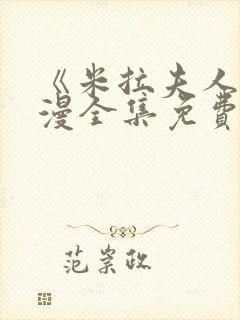 《米拉夫人
漫全集免费
范崇政